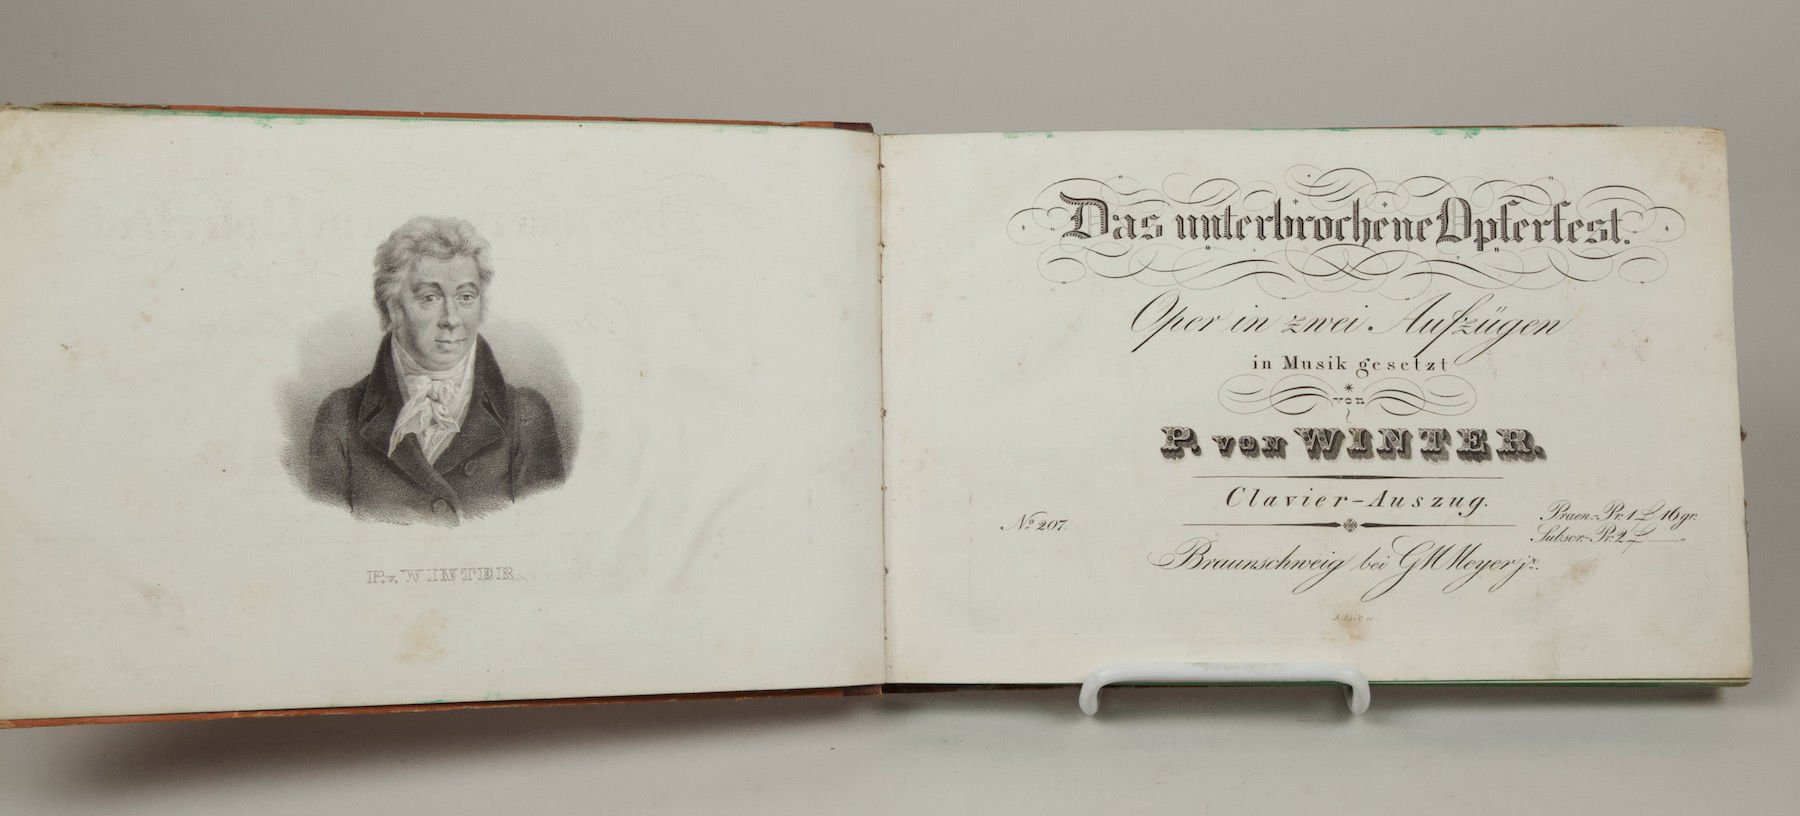 P. v. WINTER
Das unterbrochene Opferfest.
Oper in zwei Aufzügen
in Musik gesetzt
von
P. von WINTER.
Clavier-Auszug.
No 207.
Praen:-Pr. 1 ₰ 16 gr.
Subscr:-Pr. 2 ₰ ——„
Braunschweig bei G M Meyer jr.